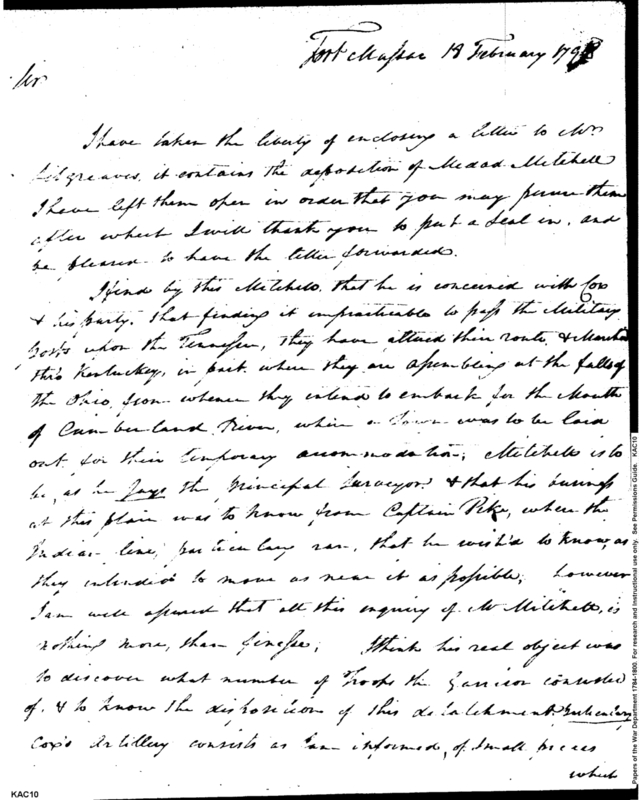 Fort Massac 18 February 1798
Sir
I have taken the liberty of enclosing a letter to Mr
Sitgreaves, it contains the deposition of Medad Mitchell
I have left them open in order that you may peruse them
after which I will thank you to put a Seal in, and
be pleased to have the letter forwarded.
I find by this Mitchell, that he is concerned with Cox
& his party. that finding it impracticable to pass the Military
posts upon the Tennessee, they have altered their route, & Marched
thro Kentuckey, in part, where they are assembling at the falls of
the Ohio, from whence they intend to embark for the Mouth
of Cumberland River, where a Town was to be laid
out, for their temporary accommodation; Mitchell is to
be, as he Says the principal Surveyor. & that his business
at this place was to know from Captain Pike, where the
Indian line, particulary ran, that he wish'd to know, as
they intended to move as near it as possible, however
I am well assured that all this enquiry of Mr Mitchell, is
nothing more, than finesse; I think his real object was
to discover what number of Troops the Garrison consisted
of. & to know the disposition of this detachment
Cox's Artillery consists as I am informed, of Small pieces
which
KAC10
Papers of the War Department 1784-1800. For research and instructional use only. See Permissions Guide. KAC10